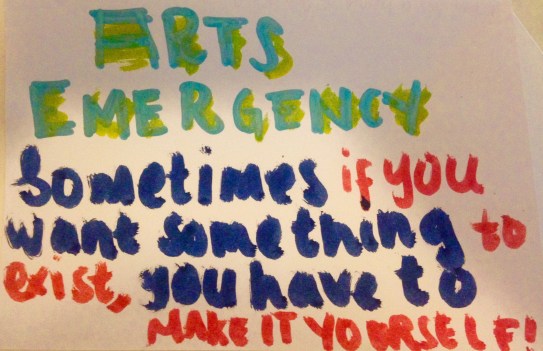 ARTS
EMERGENCY
Sometimes if you
want something to
exist, you have to
MAKE IT YOURSELF!